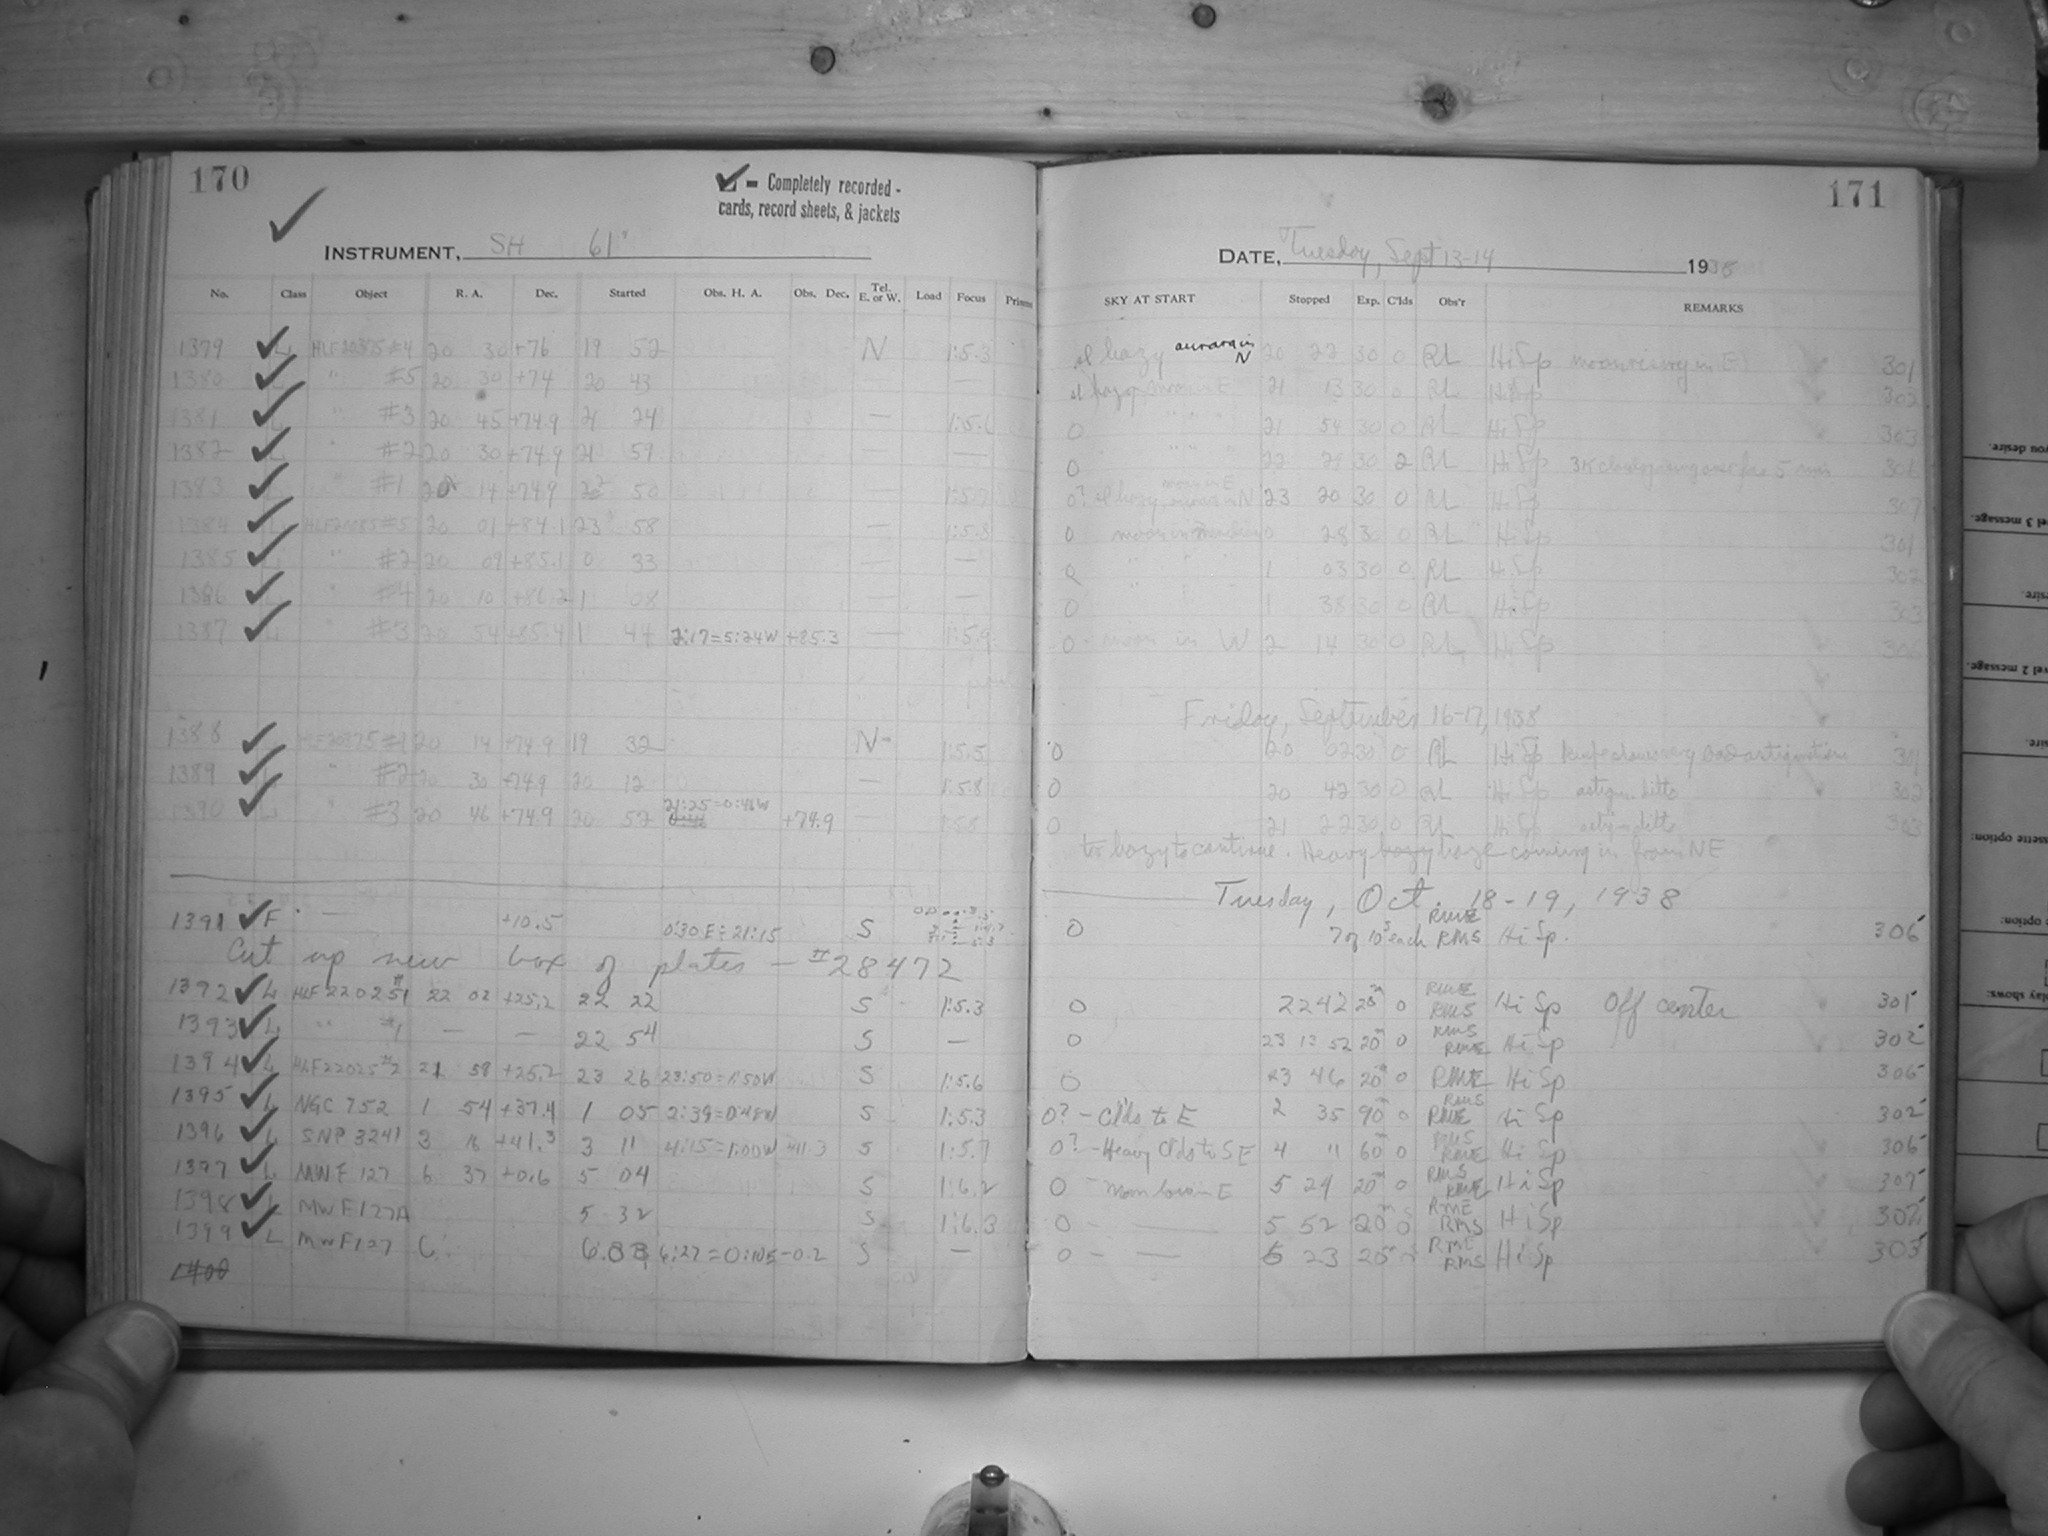 170
✓ = Completely recorded -
cards, record sheets, & jackets
INSTRUMENT, SH 61"
No. Class Object R. A. Dec. Started Obs. H. A. Obs. Dec. Tel. E. or W. Load Focus
1379 L #4 20 30 +76 19 52 N 1:5.3
1380 L " #5 20 30 +74 20 43 —
1381 L " #3 20 45 +74.9 21 24 —
1382 L " #2 20 30 +74.9 21 59 — —
1383 L " #1 20 14 +74.9 22 50 —
1384 L #5 20 01 +84.1 23 58 — 1:5.3
1385 L " #2 20 09 +85.1 0 33 — —
1386 L " #4 20 10 +86.2 1 08 — —
1387 L " #3 20 54 +85.4 1 44 2:17=5:24W +85.3 — 1:5.9
1388 L HLF20875 #1 20 14 +74.9 19 32 N 1:5.5
1389 L " #2 20 30 +74.9 20 12 — 1:5.8
1390 L " #3 20 46 +74.9 20 52 21:25=0:46W +74.9 — 1:5.8
1391 F — +10.5 0:30 E ÷ 21:15 S
Cut up new box of plates — #28472
1392 L HLF 22025 #1 22 02 +25.2 22 22 S 1:5.3
1393 L " " #1 — — 22 54 S —
1394 L HLF22025 #2 21 58 +25.2 23 26 23:50=1:50W S 1:5.6
1395 L NGC 752 1 54 +37.4 1 05 2:39=0:48W S 1:5.3
1396 L SNP 3241 3 16 +41.3 3 11 4:15=1:00W +41.3 S 1:5.7
1397 L MWF 127 6 37 +0.6 5 04 S 1:6.2
1398 L MWF127A 5 32 S 1:6.3
1399 L MWF127 6 6:27= -0.2 S —
1400
171
DATE, Tuesday, Sept 13-14 1938
SKY AT START Stopped Exp. C'lds Obs'r REMARKS
sl hazy aurora in N 20 22 30 0 RL Hi Sp moon rising in E 301
sl hazy moon in E 21 13 30 0 RL Hi Sp 302
0 " " " 21 54 30 0 RL Hi Sp 303
0 " " " 22 29 30 2 RL Hi Sp 5 min
0? sl hazy, moon in E aurora in N 23 20 30 0 RL Hi Sp 307
0 moon in 0 28 30 0 RL Hi Sp 301
0 " " 1 03 30 0 RL Hi Sp 302
0 " " 1 38 30 0 RL Hi Sp 303
0 - moon in W 2 14 30 0 RL Hi Sp
Friday, September 16-17, 1938
0 20 02 30 0 RL Hi Sp bad astigmatism 301
0 20 42 30 0 RL Hi Sp astigm. ditto 302
0 21 22 30 0 RL Hi Sp astigm ditto 303
too hazy to continue. Heavy haze coming in from NE
Tuesday, Oct. 18-19, 1938
0 7 of 10s each RME RMS Hi Sp. 306
0 22 42 20m 0 RME RMS Hi Sp Off center 301
0 23 13 52 20m 0 RMS RME Hi Sp 302
0 23 46 20m 0 RME Hi Sp 306
0? - Clds to E 2 35 90m 0 RMS RME Hi Sp 302
0? - Heavy Clds to SE 4 11 60m 0 RMS RME Hi Sp 306
0 - Moon low in E 5 24 20m 0 RMS RME Hi Sp 307
0 - — 5 52 20m 0 RME RMS Hi Sp 302
0 - — 6 23 20 RME RMS Hi Sp 303